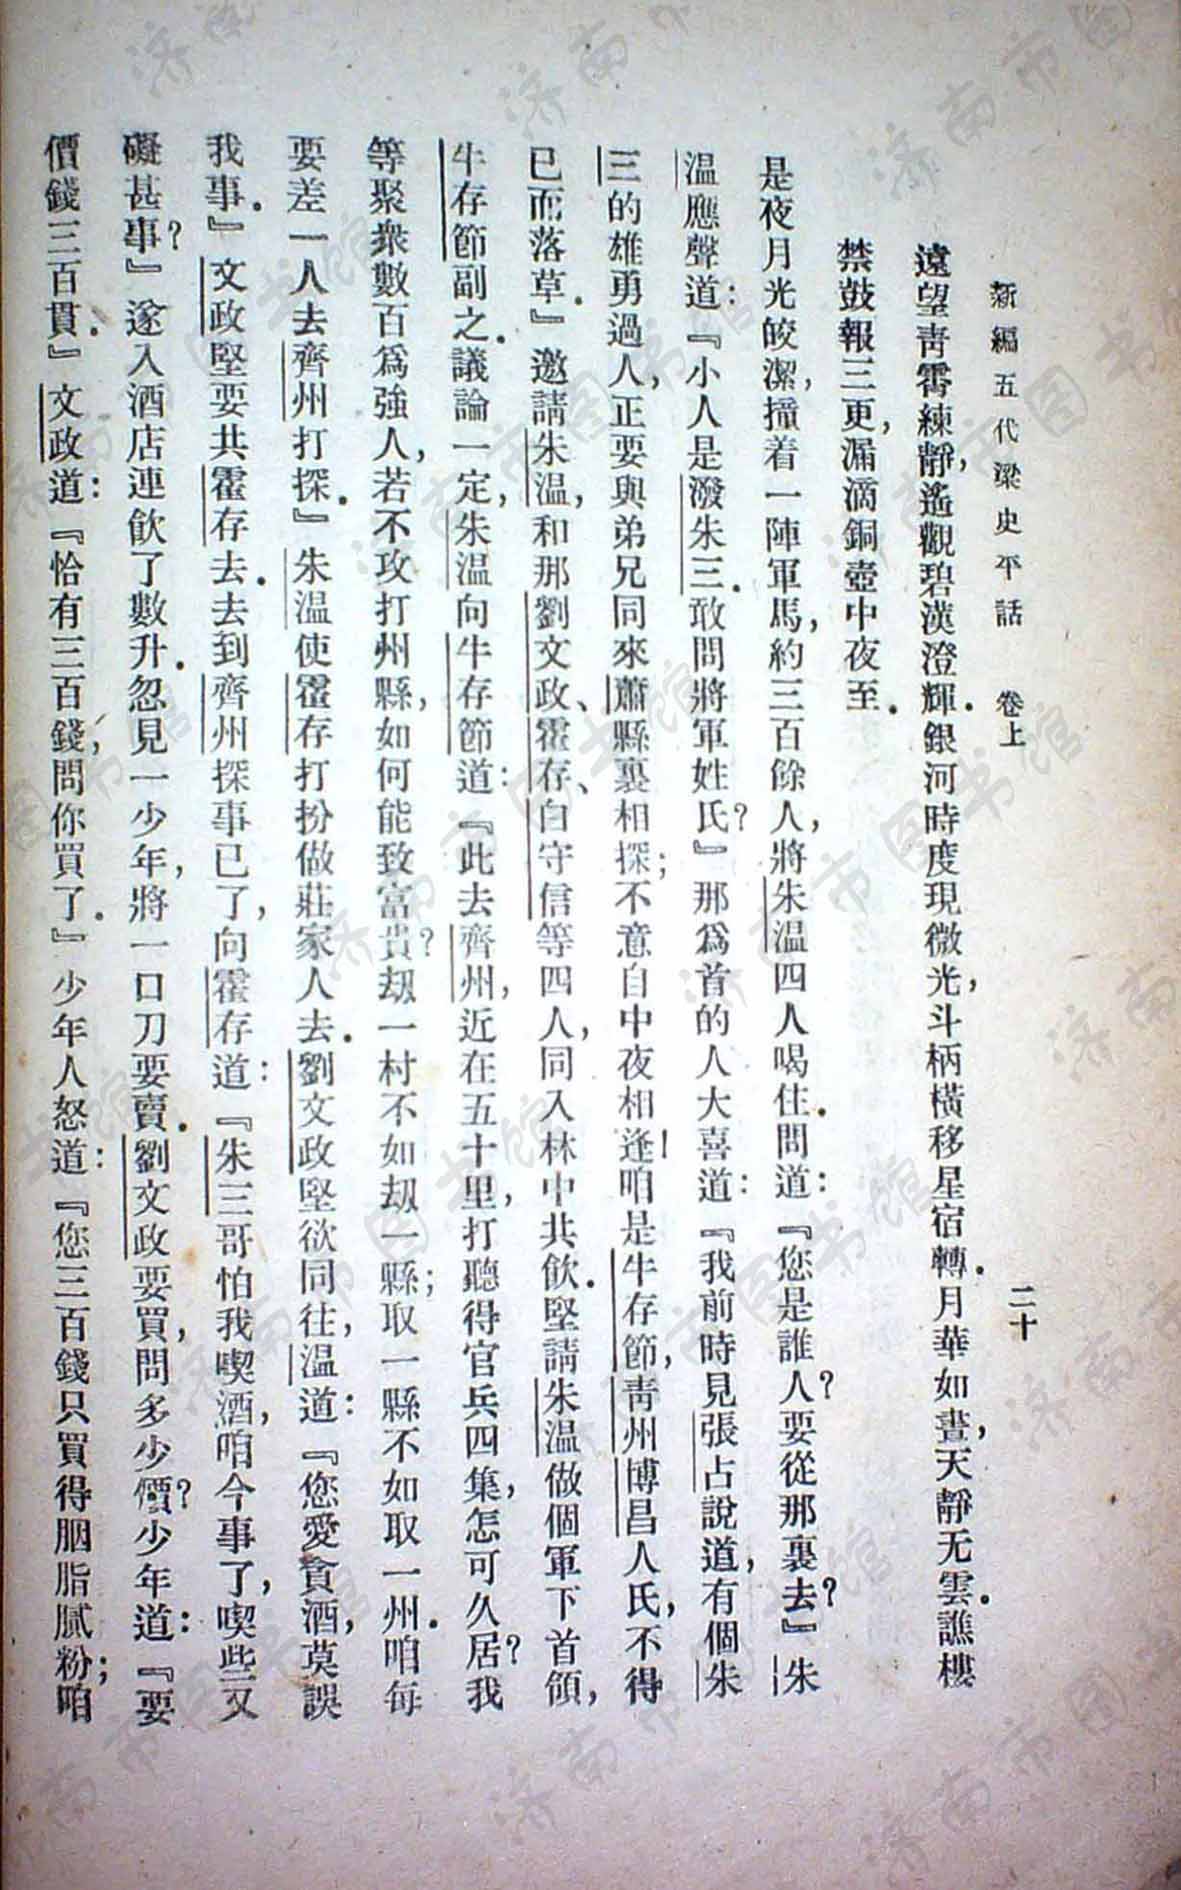 新編五代梁史平話　卷上　二十
遠望靑霄練靜，遙觀碧漢澄輝．銀河時度現微光，斗柄橫移星宿轉．月華如晝，天靜无雲．譙樓
禁鼓報三更，漏滴銅壺中夜至．
是夜月光皎潔，撞着一陣軍馬，約三百餘人，將朱温四人喝住．問道：『您是誰人？要從那裏去？』朱
温應聲道：『小人是潑朱三．敢問將軍姓氏？』那爲首的人大喜道：『我前時見張占說道，有個朱
三的雄勇過人，正要與弟兄同來蕭縣裏相探；不意自中夜相逢！咱是牛存節，靑州博昌人氏，不得
已而落草．』邀請朱温，和那劉文政、霍存、白守信等四人，同入林中共飮．堅請朱温做個軍下首領，
牛存節副之．議論一定，朱温向牛存節道：『此去齊州，近在五十里，打聽得官兵四集，怎可久居？我
等聚衆數百爲強人，若不攻打州縣，如何能致富貴？刼一村不如刼一縣；取一縣不如取一州．咱每
要差一人去齊州打探．』朱温使霍存打扮做莊家人去．劉文政堅欲同往，温道：『您愛貪酒，莫誤
我事．』文政堅要共霍存去．去到齊州探事已了，向霍存道：『朱三哥怕我喫酒，咱今事了，喫些又
礙甚事？』遂入酒店連飮了數升．忽見一少年，將一口刀要賣．劉文政要買，問多少價？少年道：『要
價錢三百貫．』文政道：『恰有三百錢，問你買了．』少年人怒道：『您三百錢只買得胭脂膩粉；咱
濟南市图书馆